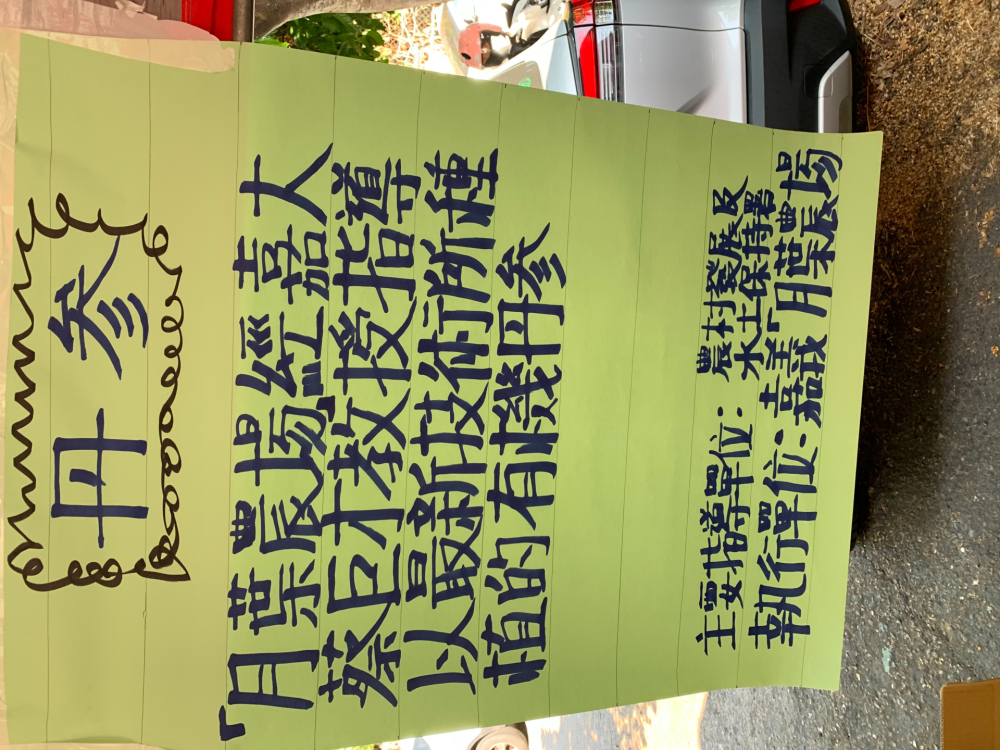 丹參
「月枼農場」經嘉大
蔡巨才教授指導
以最新技術所種
植的有機丹參
主要指導單位：農村發展及
水土保持署
執行單位：嘉義「月枼農場